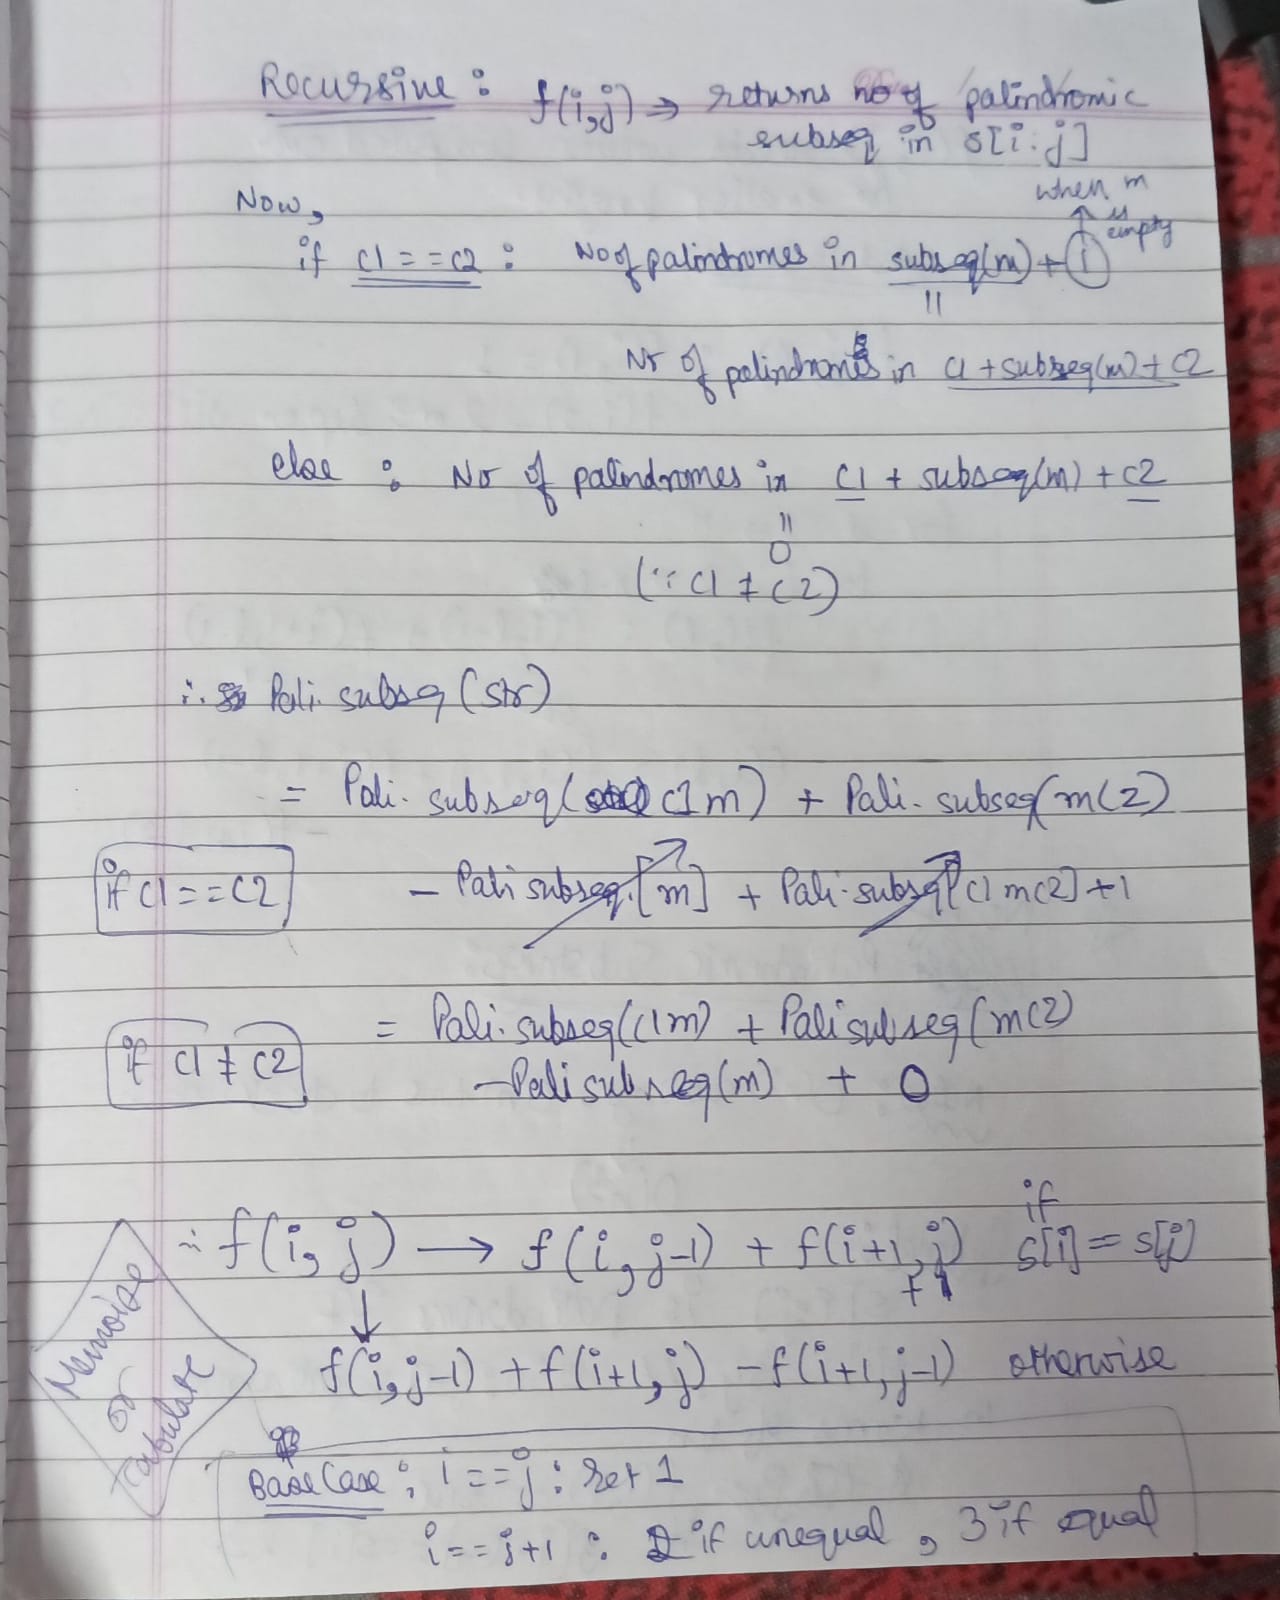 Recursive : f(i,j) → returns no of palindromic
subseq in s[i:j]
Now,
when m
is
empty
if c1 == c2 : No of palindromes in subseq(m) + 1
||
Nr of palindromes in c1 + subseq(m) + c2
else : Nr of palindromes in c1 + subseq(m) + c2
||
0
(∵ c1 ≠ c2)
∴ Pali. subseq (str)
= Pali. subseq( c1 m) + Pali. subseq(m c2)
if c1 == c2
- Pali subseq. [m] + Pali. subseq[c1 m c2] + 1
if c1 ≠ c2
= Pali. subseq(c1m) + Pali subseq(mc2)
- Pali subseq(m) + 0
if
∴ f(i, j) → f(i, j-1) + f(i+1, j) s[i] = s[j]
+ 1
↓
f(i, j-1) + f(i+1, j) - f(i+1, j-1) otherwise
Memoise
or
tabulate
Base Case : i == j : ret 1
i == j+1 : 2 if unequal , 3 if equal